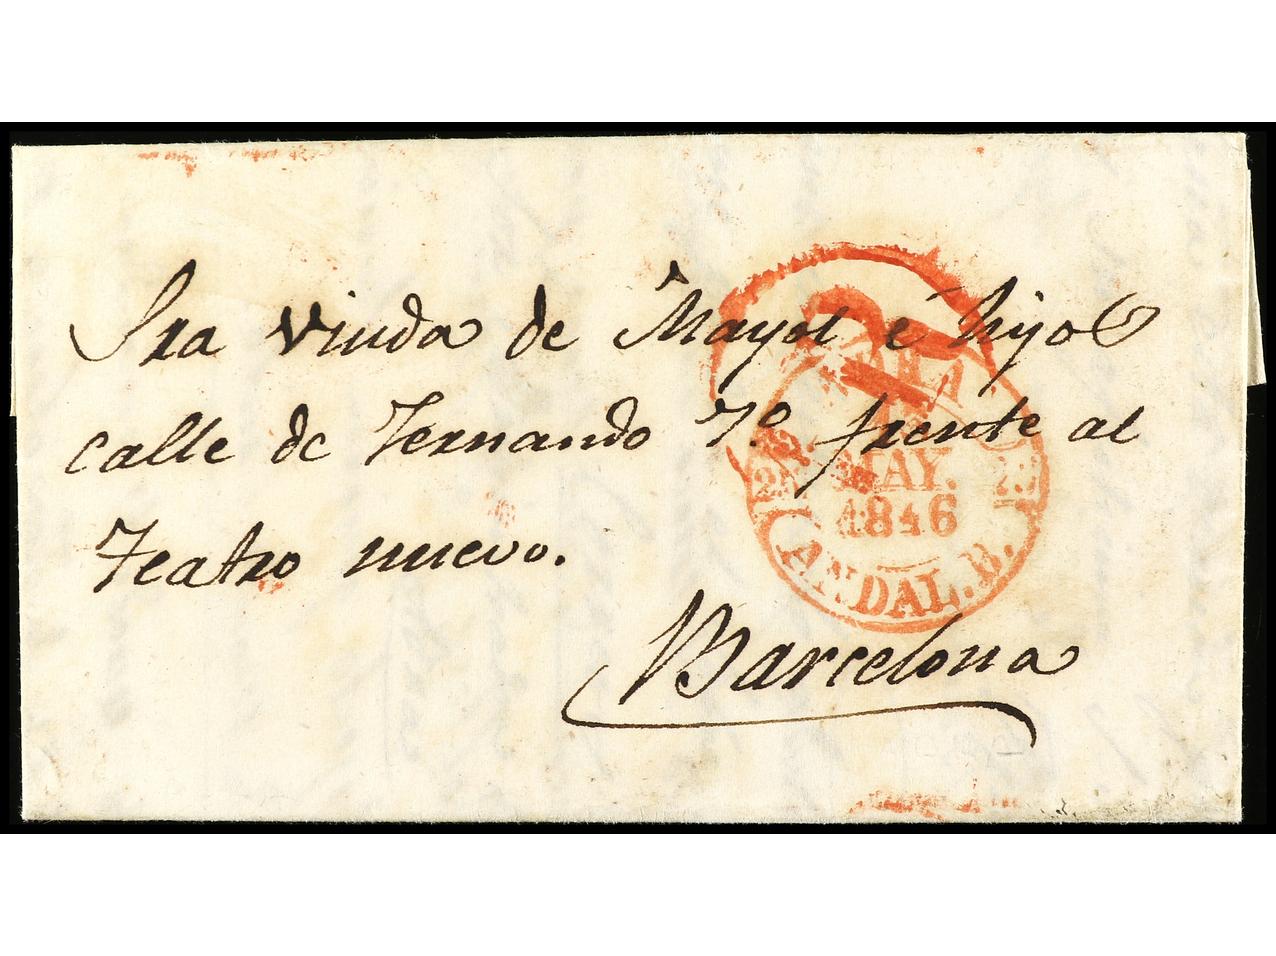 Sra Viuda de Mayol é hijos
calle de Fernando 7º frente al
Teatro nuevo.
Barcelona
MAY.
1846
ANDAL. B.